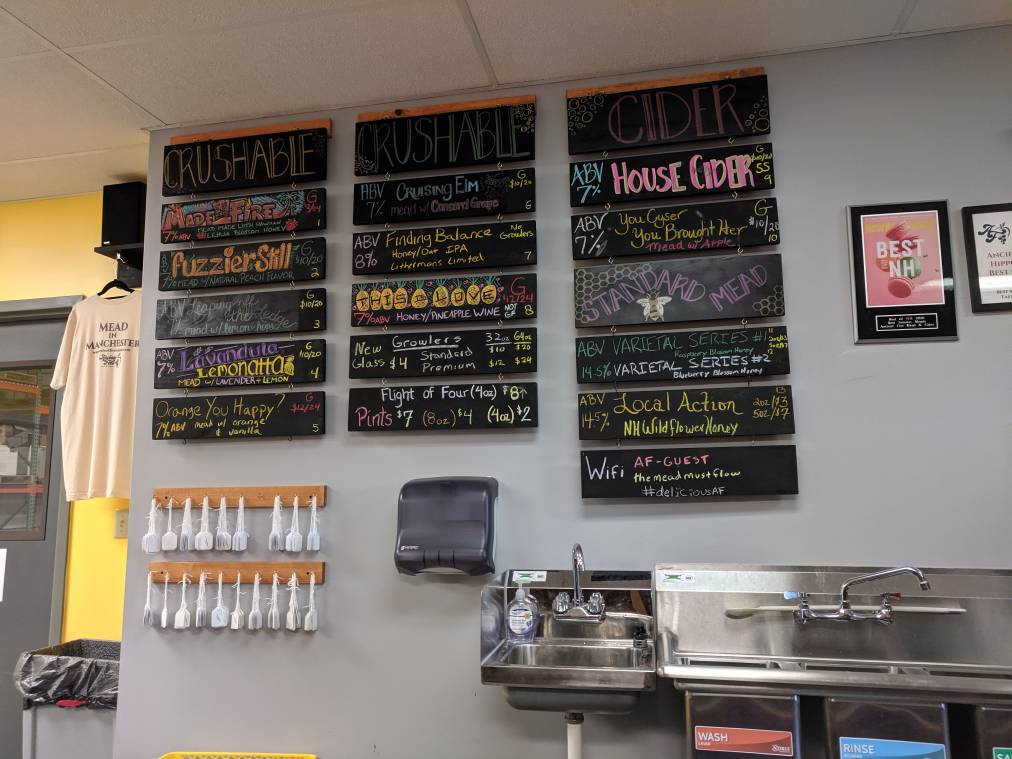 CRUSHABLE
MADE FIRE
7% MEAD MADE WITH HAWAIIAN
LEHUA BLOSSOM HONEY
1
FUZZIER STILL
G
$10/20
7% MEAD W/ NATURAL PEACH FLAVOR
2
ABV
G
$10/20
mead w/ lemon + hops
3
ABV
7%
Lavandula
Lemonatta
G
10/20
MEAD W/ LAVENDER + LEMON
4
Orange You Happy?
G
$12/24
7% ABV mead w/ orange
& vanilla
5
CRUSHABLE
ABV
7%
CRUISING ELM
mead w/ Concord Grape
G
$10/20
6
ABV
8%
Finding Balance
Honey/Our IPA
Lithermans Limited
No
Growlers
7
THIS IS LOVE
7% ABV HONEY/PINEAPPLE WINE
G
8
New Growlers 32oz 64oz
Glass $4 Standard $10 $20
Premium $12 $24
Flight of Four (4oz) $8↑
Pints $7 (8oz) $4 (4oz) $2
CIDER
ABV
7%
HOUSE CIDER
G
$10/20
9
ABV
7%
You Cyser
You Brought Her
Mead w/ Apple
G
$10/20
10
STANDARD MEAD
ABV
14.5%
VARIETAL SERIES #1
Raspberry Blossom Honey
VARIETAL SERIES #2
Blueberry Blossom Honey
ABV
14.5%
Local Action
NH Wildflower Honey
13
2oz/$3
5oz/$7
Wifi AF-GUEST
themeadmustflow
#deliciousAF
MEAD
IN
MANCHESTER
BEST
NH
WASH
RINSE